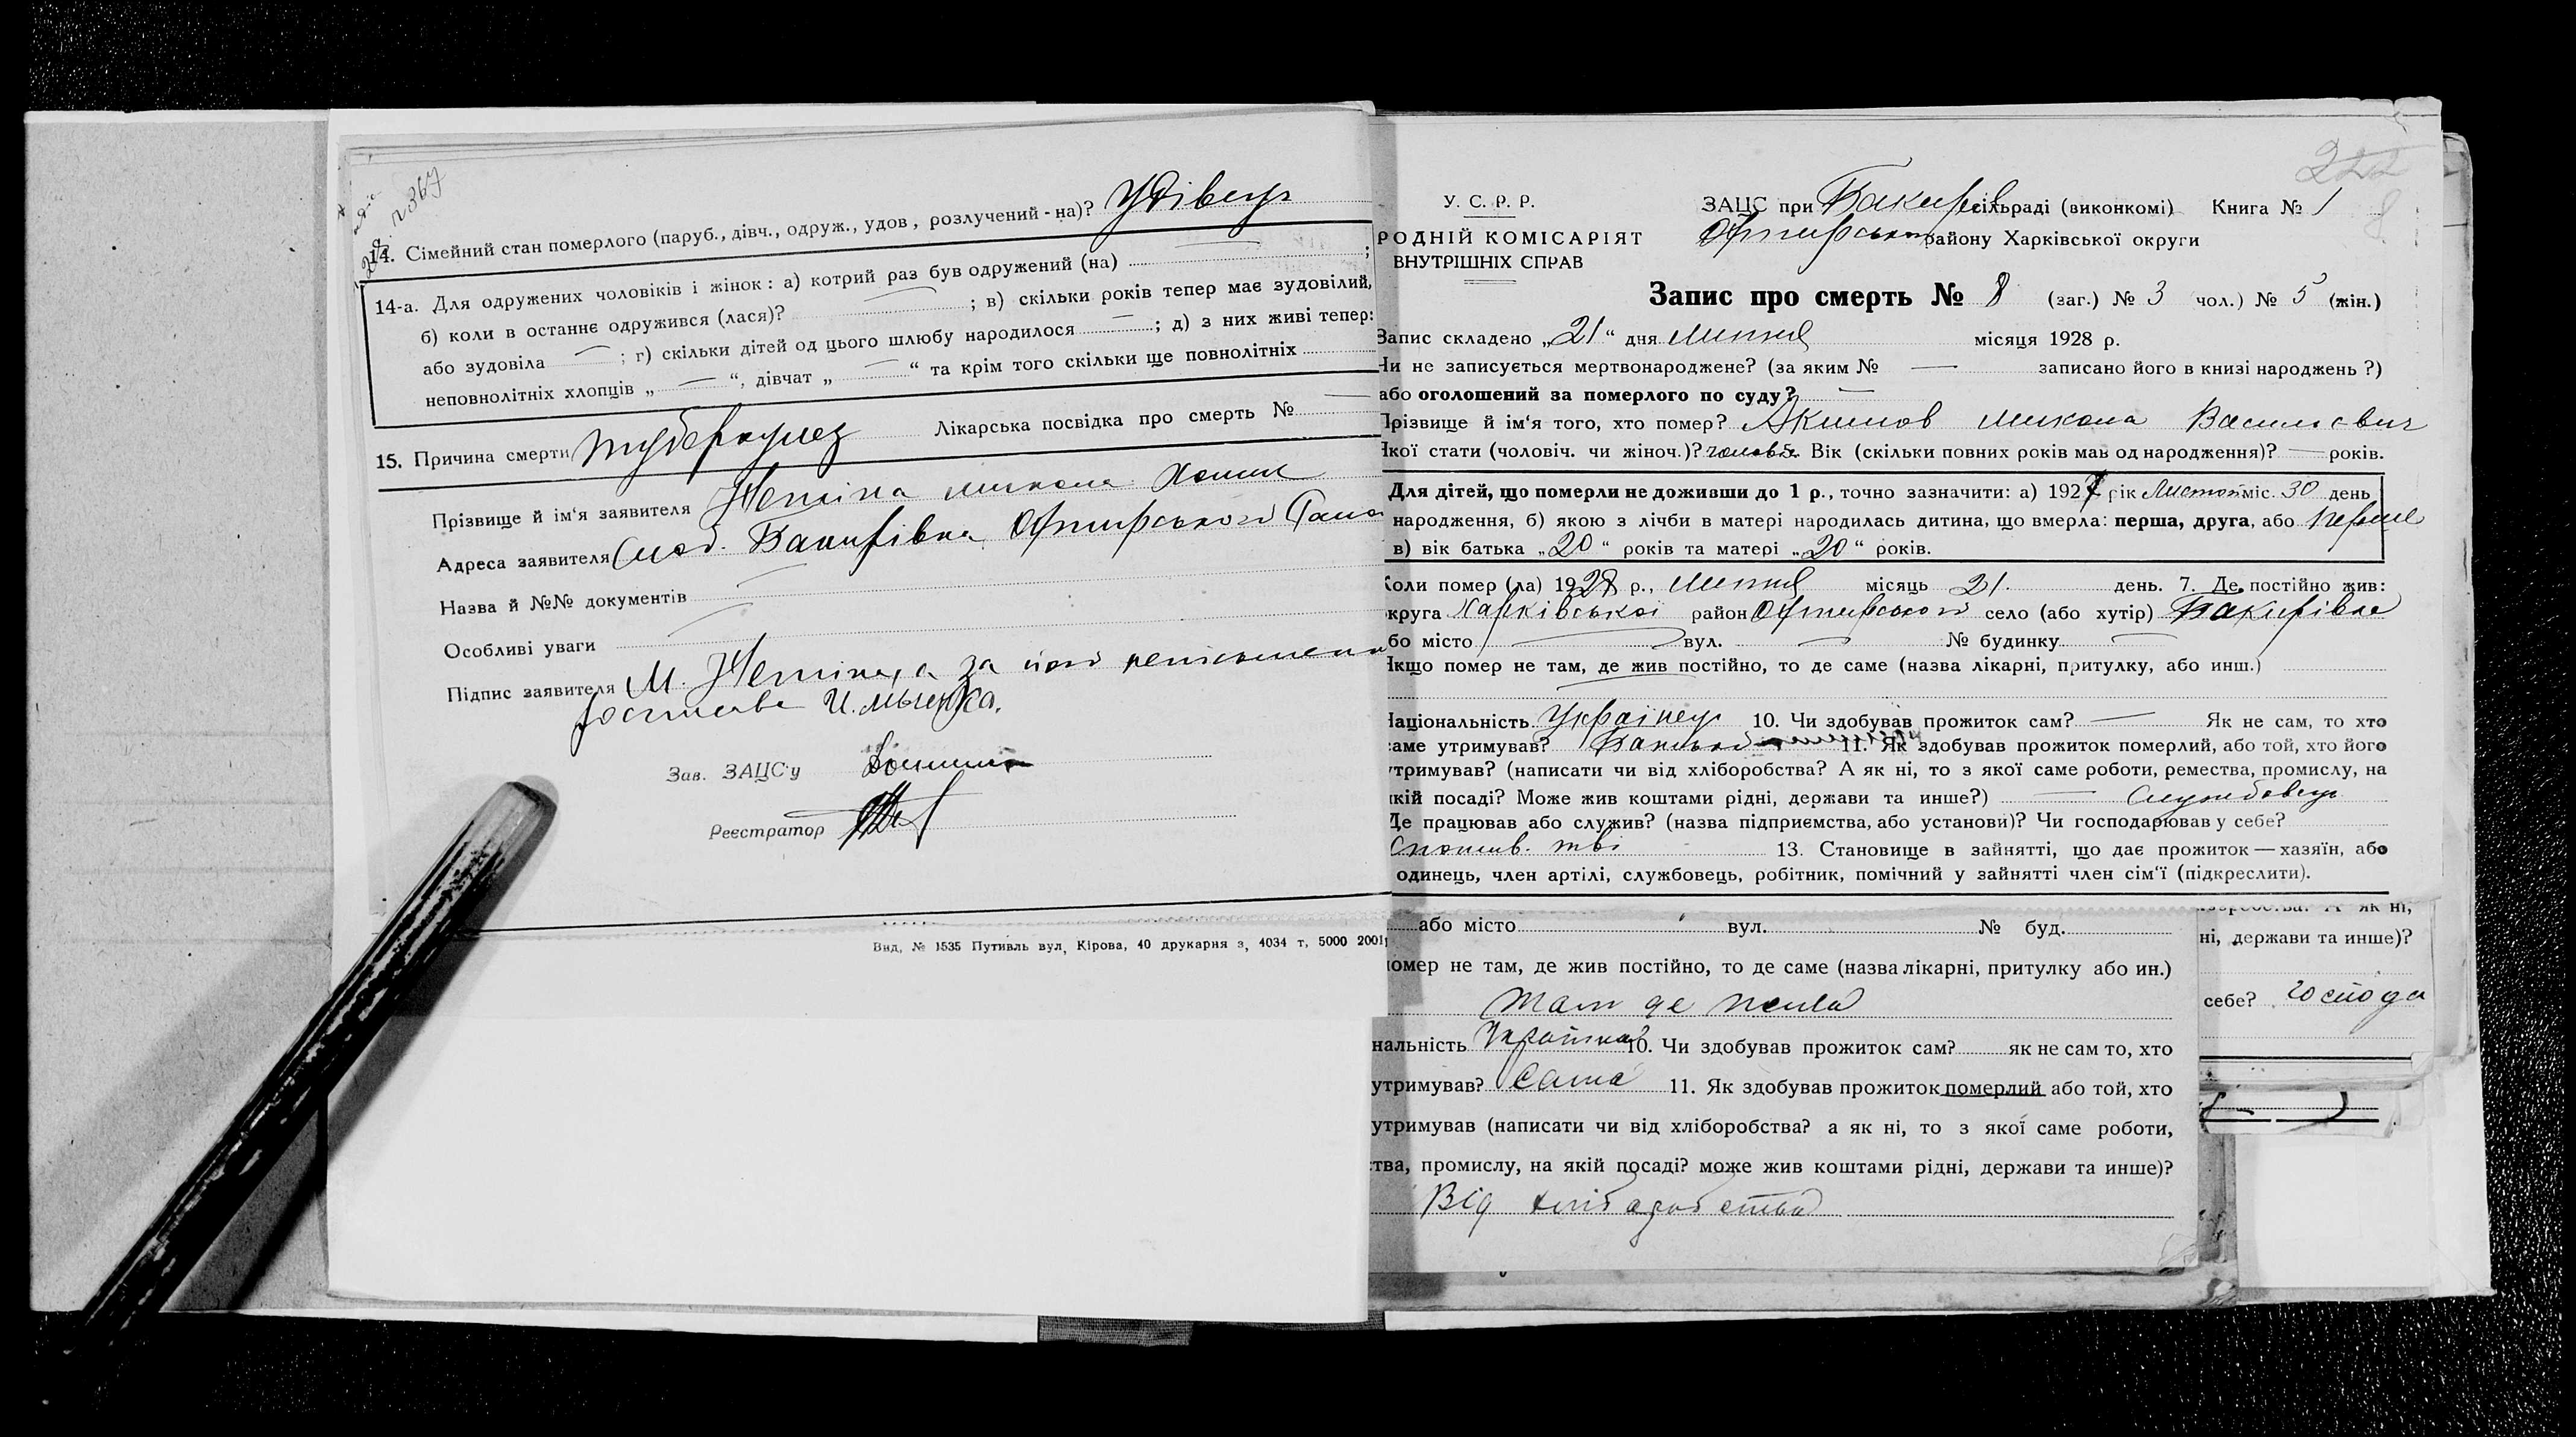 № 367
14. Сімейний стан померлого (паруб., дівч., одруж., удов, розлучений - на)? Удівець
14-а. Для одружених чоловіків і жінок: а) котрий раз був одружений (на) — ;
б) коли в останнє одружився (лася)? — ; в) скільки років тепер має зудовілий,
або зудовіла — ; г) скільки дітей од цього шлюбу народилося — ; д) з них живі тепер:
неповнолітніх хлопців „ — “, дівчат „ — “ та крім того скільки ще повнолітніх
15. Причина смерти туберкулез Лікарська посвідка про смерть № —
Прізвище й ім‘я заявителя микола
Адреса заявителя Бакирівка Охтирського
Назва й №№ документів —
Особливі уваги —
Підпис заявителя М. за його
Зав. ЗАЦС‘у
Реєстратор
Вид, № 1535 Путивль вул, Кірова, 40 друкарня з, 4034 т, 5000 2001
222
8
У. С. Р. Р.
РОДНІЙ КОМІСАРІЯТ
ВНУТРІШНІХ СПРАВ
ЗАЦС при Бакирів сільраді (виконкомі) Книга № 1
Охтирського району Харківської округи
Запис про смерть № 8 (заг.) № 3 чол.) № 5 (жін.)
Запис складено „21“ дня липня місяця 1928 р.
Чи не записується мертвонароджене? (за яким № — записано його в книзі народжень ?)
або оголошений за померлого по суду? —
Прізвище й ім‘я того, хто помер? Акимов микола Васильович
Якої стати (чоловіч. чи жіноч.)? чоловіч. Вік (скільки повних років мав од народження)? — років.
Для дітей, що померли не доживши до 1 р., точно зазначити: а) 1927 рік Листоп міс. 30 день
народження, б) якою з лічби в матері народилась дитина, що вмерла: перша, друга, або перше
в) вік батька „20“ років та матері „20“ років.
Коли помер (ла) 1928 р., липня місяць 21. день. 7. Де постійно жив:
округа Харківської район Охтирського село (або хутір) Бакирівка
або місто — вул. — № будинку —
Якщо помер не там, де жив постійно, то де саме (назва лікарні, притулку, або инш.)
Національність Українець 10. Чи здобував прожиток сам? — Як не сам, то хто
саме утримував? Батько 11. Як здобував прожиток померлий, або той, хто його
утримував? (написати чи від хліборобства? А як ні, то з якої саме роботи, ремества, промислу, на
якій посаді? Може жив коштами рідні, держави та инше?) — Службовець
Де працював або служив? (назва підприємства, або установи)? Чи господарював у себе?
Спожив. т-ві 13. Становище в зайнятті, що дає прожиток — хазяїн, або
одинець, член артілі, службовець, робітник, помічний у зайнятті член сім‘ї (підкреслити).
або місто вул. № буд.
помер не там, де жив постійно, то де саме (назва лікарні, притулку або ин.)
Там де жила
нальність Українка 10. Чи здобував прожиток сам? як не сам то, хто
утримував? Сама 11. Як здобував прожиток померлий або той, хто
утримував (написати чи від хліборобства? а як ні, то з якої саме роботи,
тва, промислу, на якій посаді? може жив коштами рідні, держави та инше)?
Від хліборобства
як ні,
ні, держави та инше)?
себе? господа